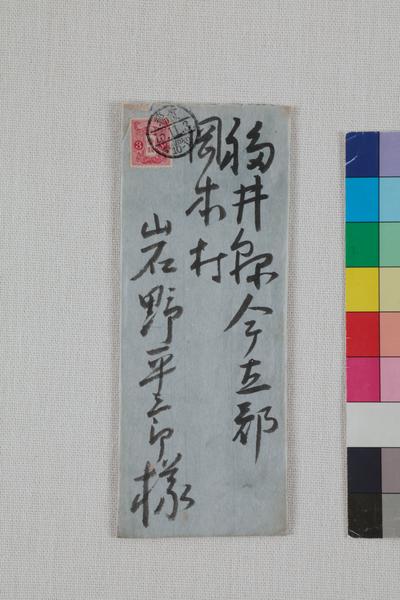 福井県今立郡
岡本村
岩野平三郎様
3